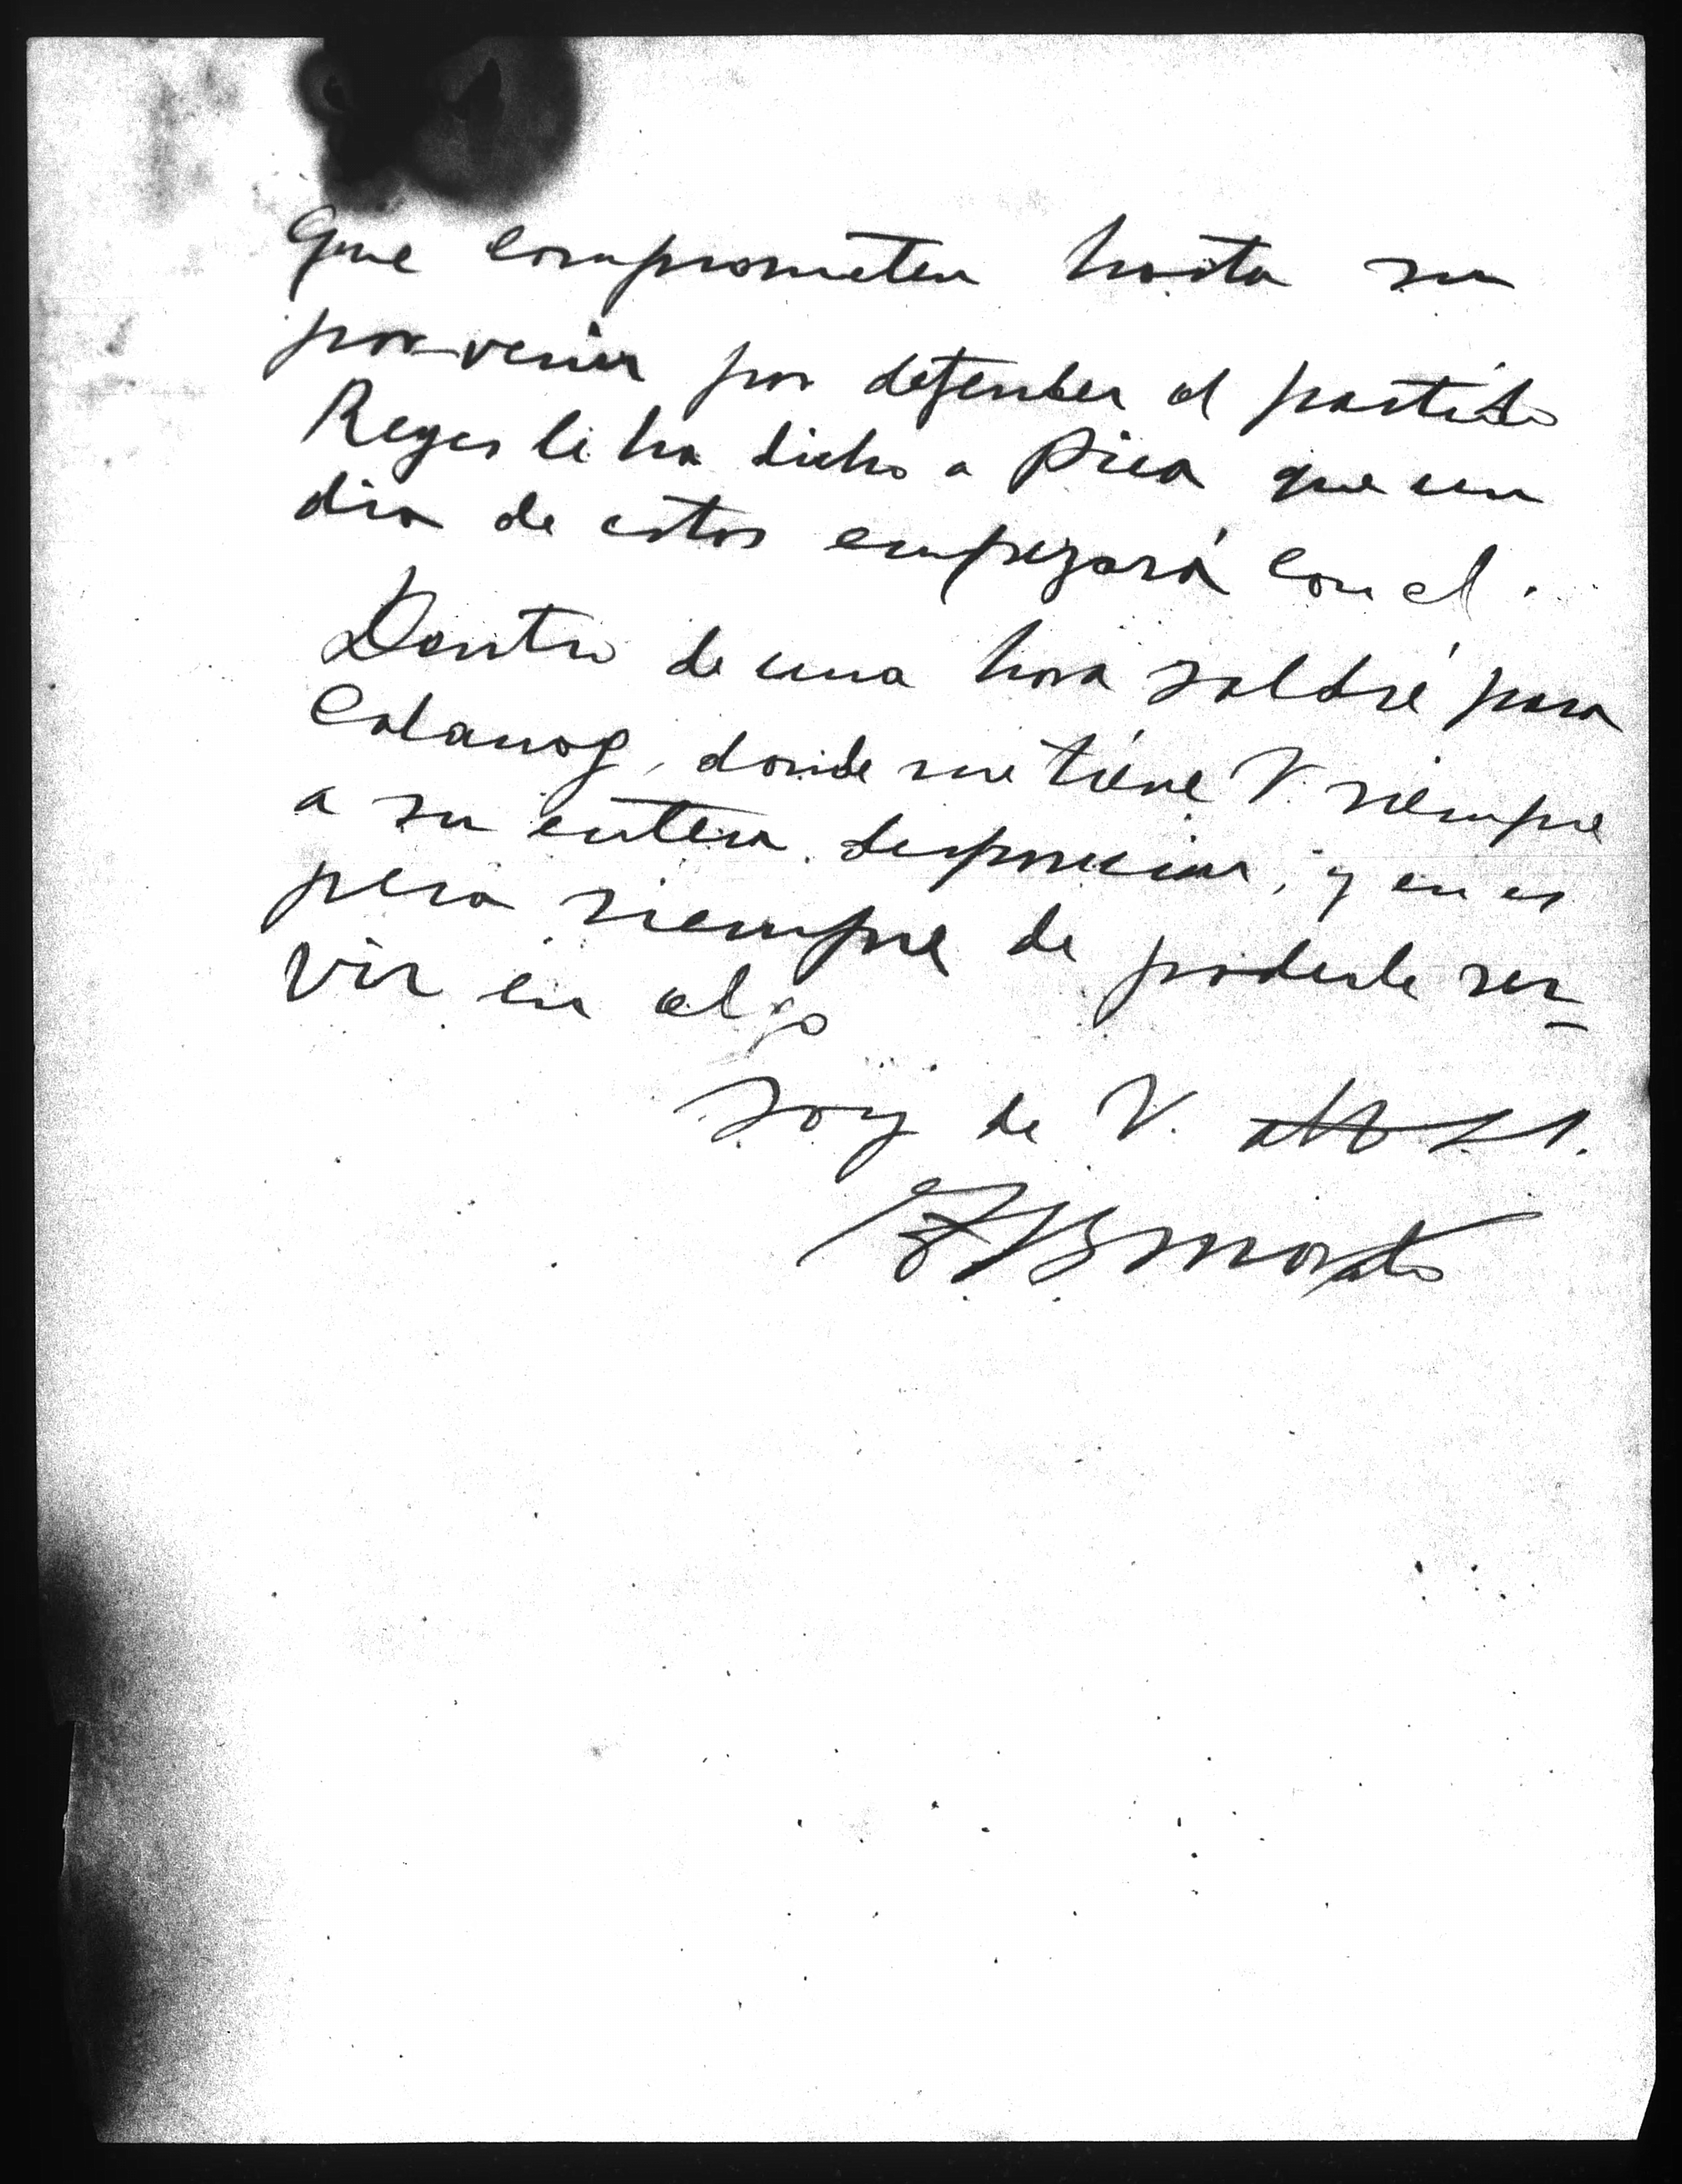 que comprometen hasta su
porvenir por defender el partido
Reyes le ha dicho a Pica que un
dia de estos empezará con el.
Dentro de una hora saldré para
Calanog, donde me tiene V. siempre
a su entera disposicion, y en es
pera siempre de poderle ser-
vir en algo
Soy de V. atto S. S.